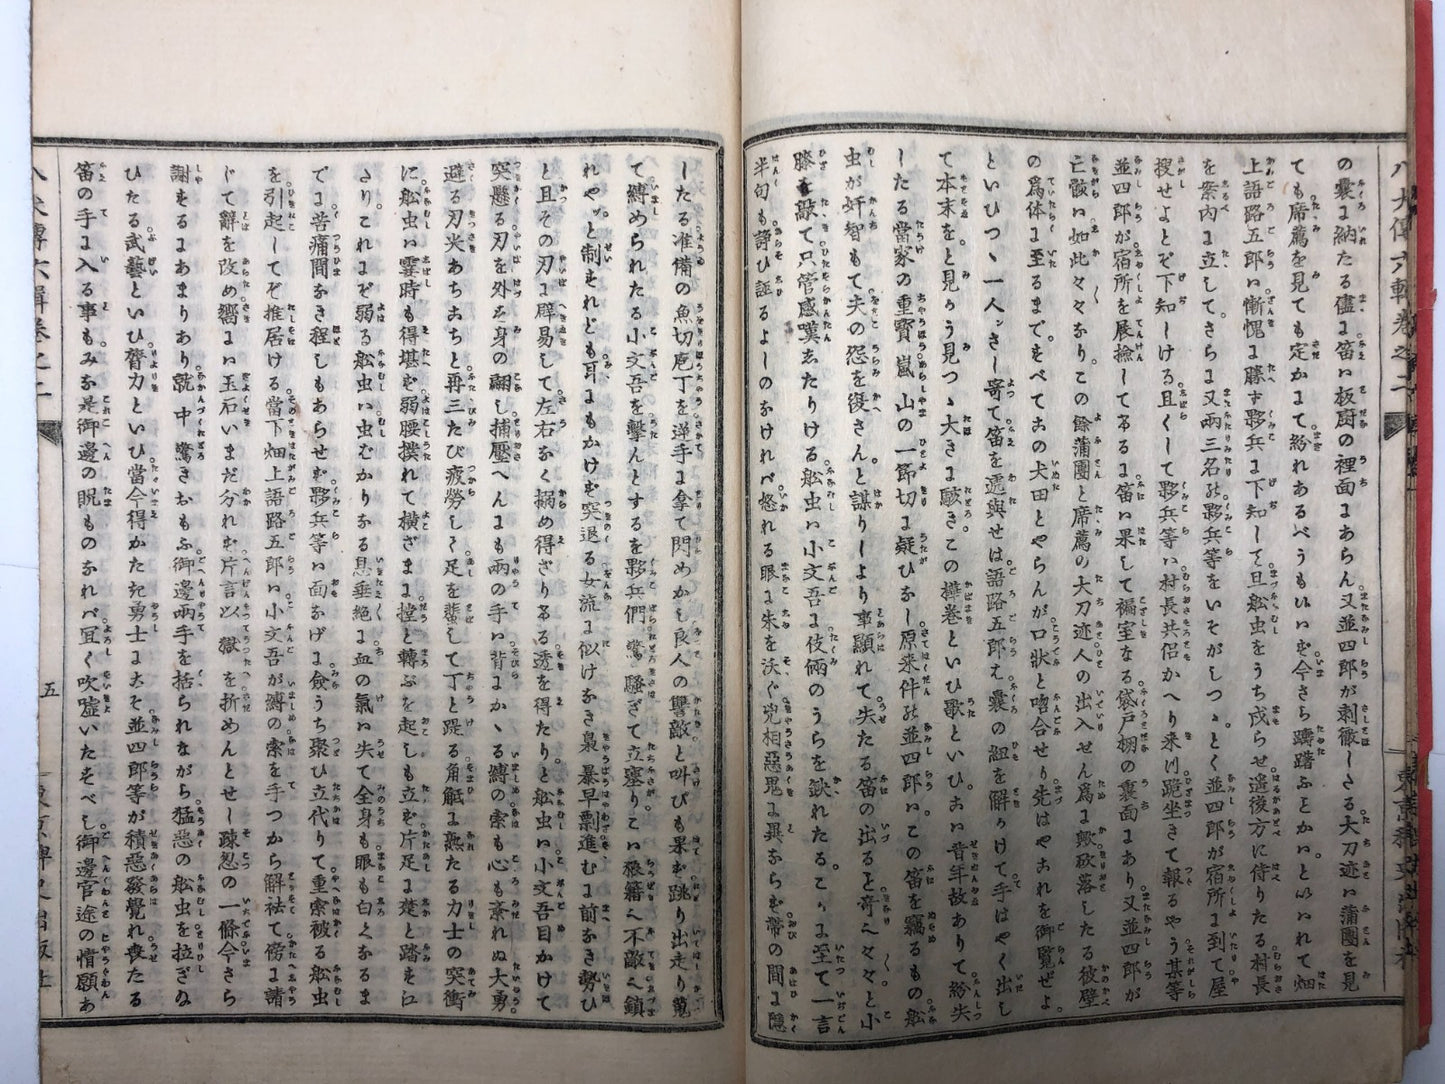 の嚢に納たる儘に笛ハ板厨の裡面にあらん又並四郎が刺徹しさる大刀迹ハ蒲團を見
ても席薦を見ても定かにて紛れあるべうもひハを今さら躊躇ふとかハといハれて畑
上語路五郎ハ慚愧に勝す夥兵に下知して且舩虫をうち戍らせ遥後方に侍りたる村長
を案内に立してさらに又両三名の夥兵等をいそがしつゝとく並四郎が宿所に到て屋
捜せよとぞ下知しける且くして夥兵等ハ村長共侶かへり来つ跪坐きて報るやう某等
並四郎が宿所を展撿してゐるに笛ハ果して褊室なる袋戸棚の裏面にあり又並四郎が
亡骸ハ如此々々なりこの餘蒲團と席薦の大刀迹人の出入せん為に欹砍落したる彼壁
の為体に至るまですべておの犬田とやらんが口状と吻合せり先はやおれを御覧ぜよ
といひつゝ一人ンさし寄て笛を遞與せは語路五郎ハ嚢の紐を解かけて手はやく出し
て本末をと見かう見つゝ大きに駭きこの樺巻といひ歌といひおハ昔年故ありて紛失
したる當家の重寶嵐山の一節切に疑ひなし原来件の並四郎ハこの笛を竊るもの舩
虫が奸智もて夫の怨を復さんと謀りしより事顕れて失たる笛の出るを竒へ々々と小
膝を敲て只管感嘆ゑたりける舩虫ハ小文吾に伎倆のうらを缺れたるこゝに至て一言
半句も諍ひ誣るよしのなけれバ怒れる眼に朱を沃ぐ兇相惡鬼に異ならず帯の間に隠
したる准備の魚切庖丁を逆手に拿て閃めかし良人の讐敵と叫びも果ず跳り出走り蒐
て縛められたる小文吾を撃んとするを夥兵們驚騒ぎて立塞りこハ狼籍へ不敵へ鎮
れやッと制すれども耳にもかけず突退る女流に似けなき梟暴早剽進むに前なき勢ひ
と且その刃に辟易して左右なく搦め得ざりゐる透を得たりと舩虫ハ小文吾目かけて
突懸る刃を外を身の翻し捕壓へんにも兩の手ハ背にかゝる縛の索も心も紊れぬ大勇
避る刃尖あちこちと再三たび疲勞し足を蜚して丁と踶る角觝に熟たる力士の突衝
に舩虫ハ霎時も得堪ず弱腰撲れて横ざまに撑と轉ぶを起しも立ず片足に楚と踏を江
さりこれにぞ弱る舩虫ハ虫むかりなる息垂絶に血の氣ハ失て全身も眼も白くなるま
でに苦痛間なき程しもあらせず夥兵等ハ面なげに僉うち聚ひ立代りて重索被る舩虫
を引起してぞ推居ける當下畑上語路五郎ハ小文吾が縛の索を手つから解袪て傍に請
じて辭を改め嚮にハ玉石いまだ分れず片言以獄を折めんとせし疎忽の一條今さら
謝をるにあまりあり就中驚きおもふ御邊両手を括られながら猛悪の舩虫を拉ぎぬ
ひたる武藝といひ膂力といひ當今得かたた勇士にこそ並四郎等が積惡發覺れ喪たる
笛の手に入る事もみな是御邊の貺ものなれバ冝く吹噓いたすべし御邊官途の情願あ
五